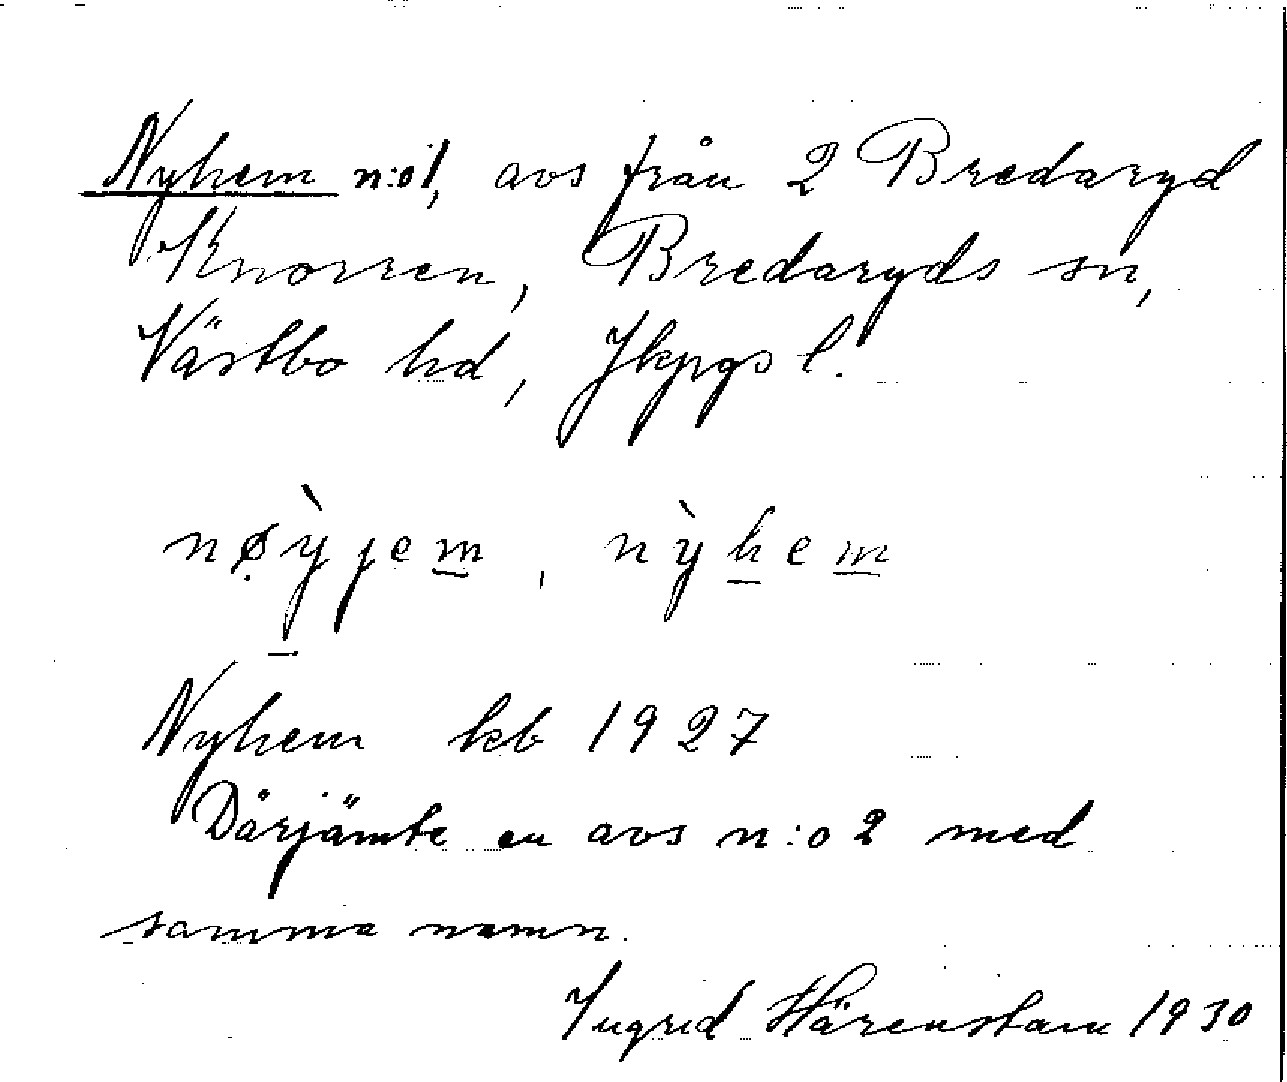 Nyhem n:o 1, avs från 2 Bredaryd
Knorren, Bredaryds sn,
Västbo hd, Jkpgs l.
nøỳjem, nỳhem
Nyhem kb 1927
Därjämte en avs n:o 2 med
samma namn.
Ingrid Härenstam 1930